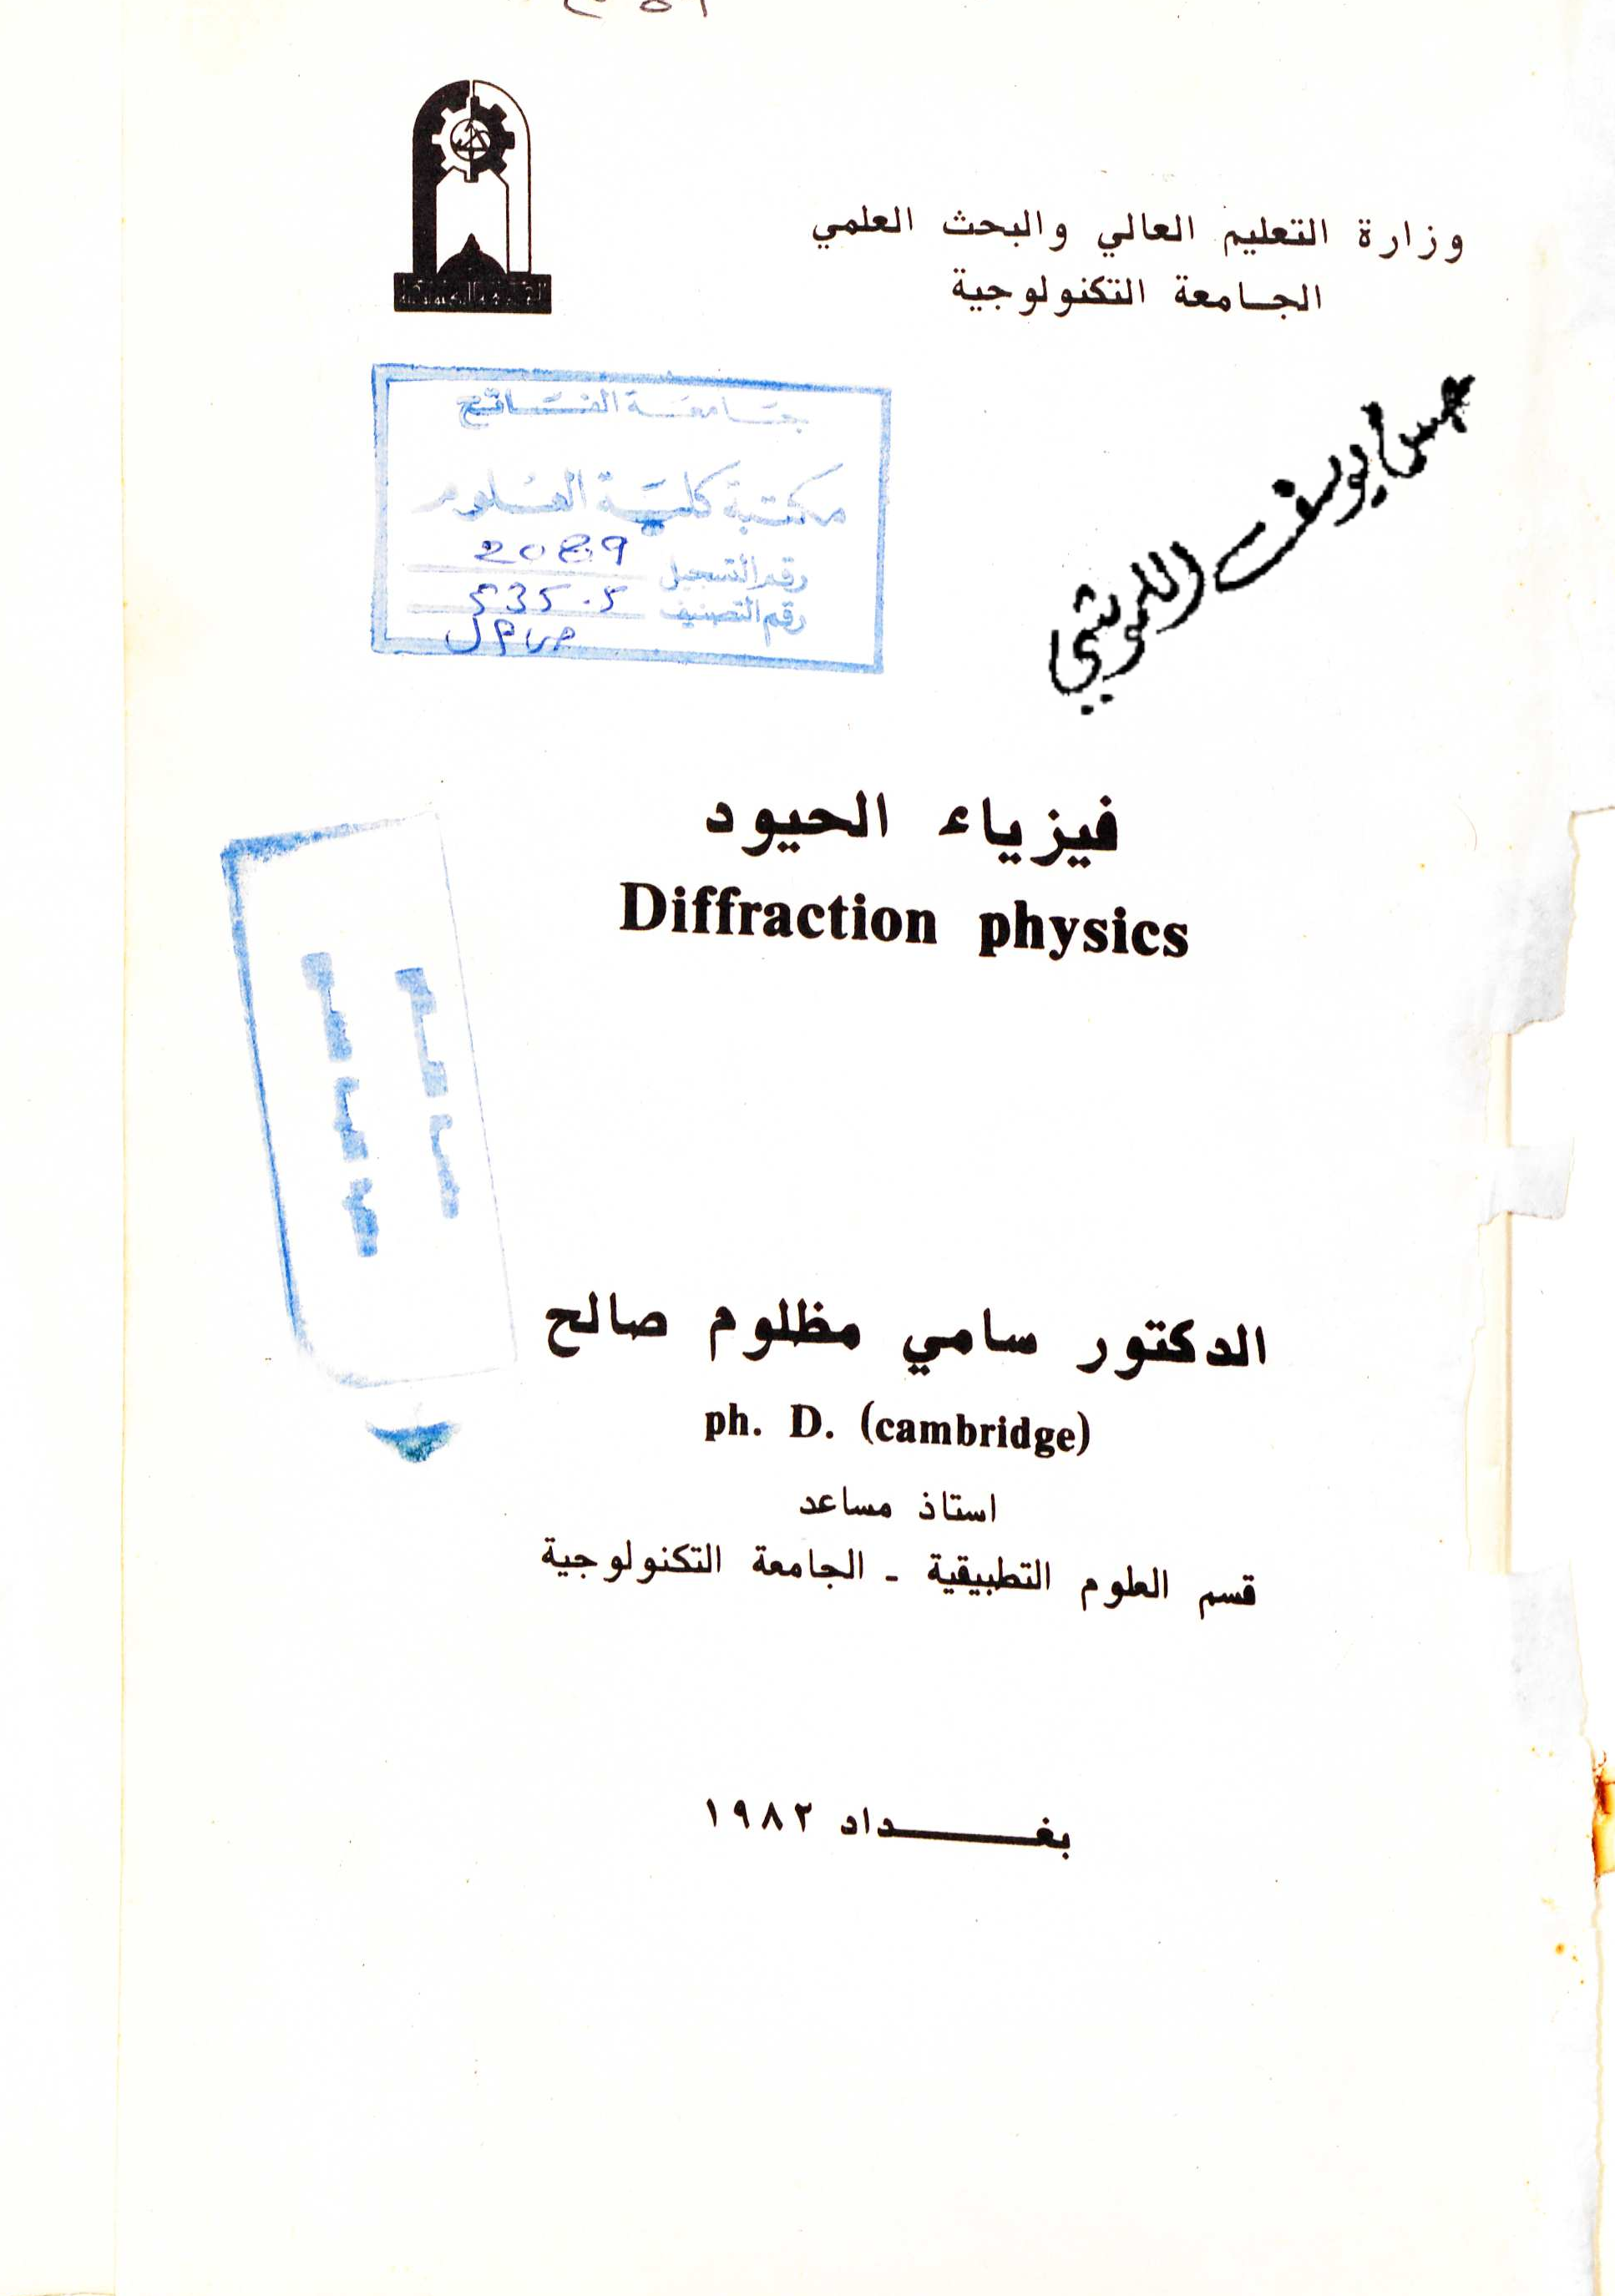 وزارة التعليم العالي والبحث العلمي
الجامعة التكنولوجية
جامعة الفاتح
مكتبة كلية العلوم
رقم التسجيل 2089
رقم التصنيف 535.5
ص م ل
يوسف
فيزياء الحيود
Diffraction physics
الدكتور سامي مظلوم صالح
ph. D. (cambridge)
استاذ مساعد
قسم العلوم التطبيقية - الجامعة التكنولوجية
بغـــداد ١٩٨٢